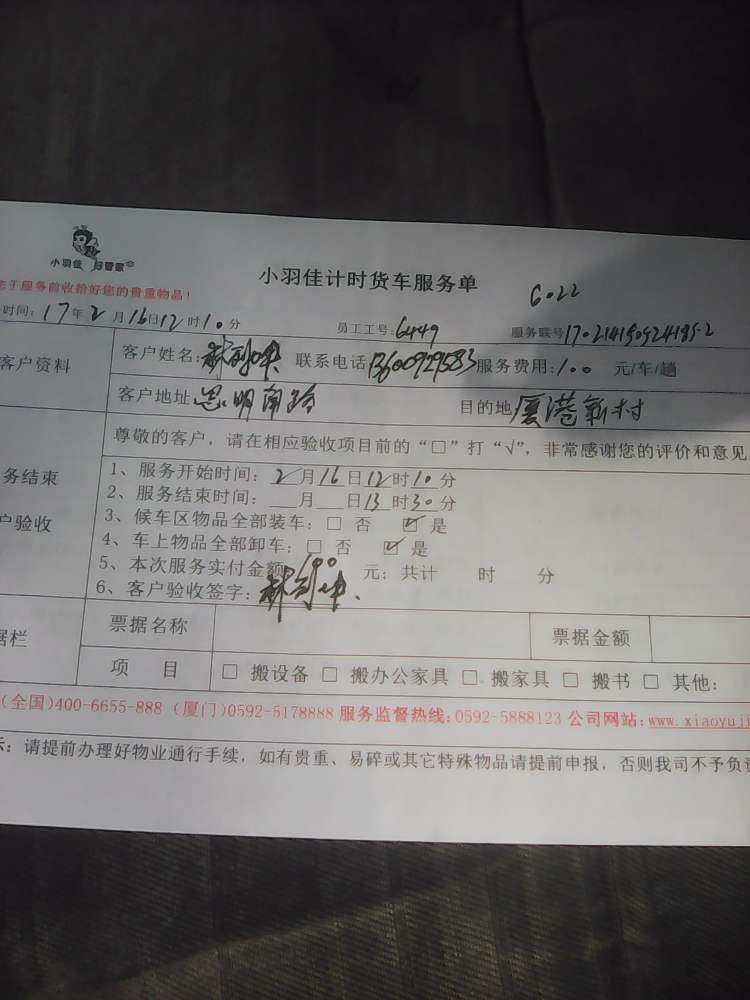 小羽佳 好管家
小羽佳计时货车服务单
6022
于服务前收拾好您的贵重物品！
时间：17年2月16日12时10分 员工工号：6449 服务联号170214150924185-2
客户资料 客户姓名： 联系电话13600929583 服务费用：100 元/车/趟
客户地址 思明南路 目的地 厦港新村
尊敬的客户，请在相应验收项目前的“□”打“√”，非常感谢您的评价和意见
务结束
户验收
1、服务开始时间：2月16日12时10分
2、服务结束时间：___月___日13时30分
3、候车区物品全部装车：□ 否 ☑ 是
4、车上物品全部卸车：□ 否 ☑ 是
5、本次服务实付金额100元：共计 时 分
6、客户验收签字：
据栏 票据名称 票据金额
项 目 □ 搬设备 □ 搬办公家具 □ 搬家具 □ 搬书 □ 其他：
(全国)400-6655-888 (厦门)0592-5178888 服务监督热线：0592-5888123 公司网站：www.xiaoyuji
示：请提前办理好物业通行手续，如有贵重、易碎或其它特殊物品请提前申报，否则我司不予负